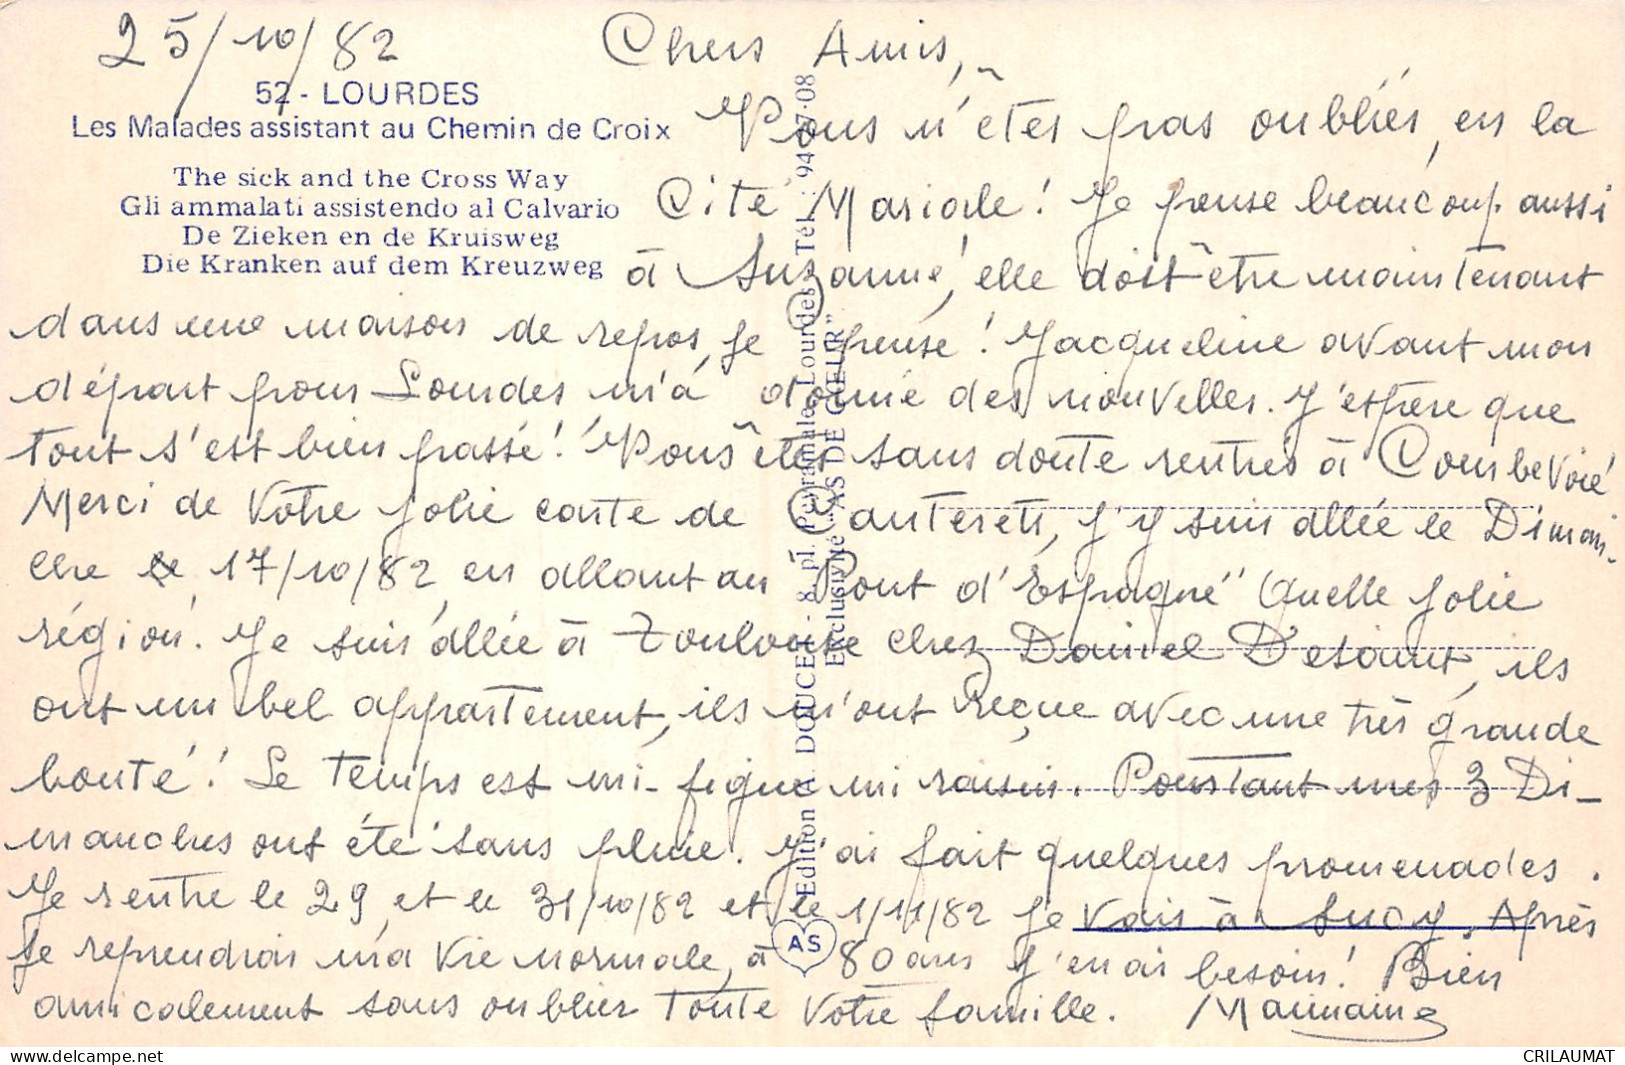 25/10/82
Chers Amis,
52 - LOURDES
Les Malades assistant au Chemin de Croix
The sick and the Cross Way
Gli ammalati assistendo al Calvario
De Zieken en de Kruisweg
Die Kranken auf dem Kreuzweg
Vous n'êtes pas oubliés, en la
Cité Mariale! Je pense beaucoup aussi
à Suzanne, elle doit être maintenant
dans une maison de repos, je pense! Jacqueline avant mon
départ pour Lourdes m'a donné des nouvelles. J'espère que
tout s'est bien passé! Vous êtes sans doute rentrés à Courbevoie
Merci de votre jolie carte de Cauterets, j'y suis allée le Diman-
che le 17/10/82, en allant au Pont d'Espagne" Quelle jolie
région. Je suis allée à Toulouse chez Daniel Desaint, ils
ont un bel appartement, ils m'ont reçue avec une très grande
bonté! Le temps est mi-figue mi raisin. Pourtant mes 3 Di-
manches ont été sans pluie. J'ai fait quelques promenades.
Je rentre le 29, et le 31/10/82 et le 1/11/82 je vais à Sucy. Après
je reprendrai ma vie normale, à 80 ans j'en ai besoin! Bien
amicalement sans oublier toute votre famille.
Édition A. DOUCET - 8, pl. Peyramale, Lourdes - Tél. : 94-27-08
Exclusivité "AS DE CŒUR"
AS
CRILAUMAT
www.delcampe.net